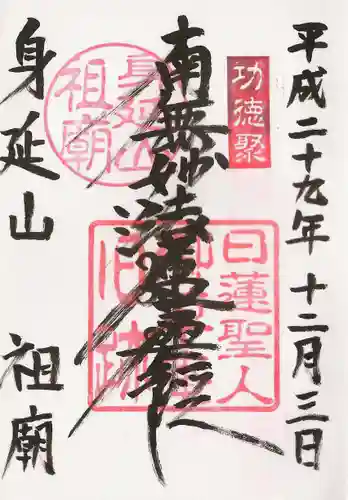 平成二十九年 十二月三日
功徳聚
南無妙法蓮華経
身延山
祖廟
身延山
祖廟
日蓮聖人